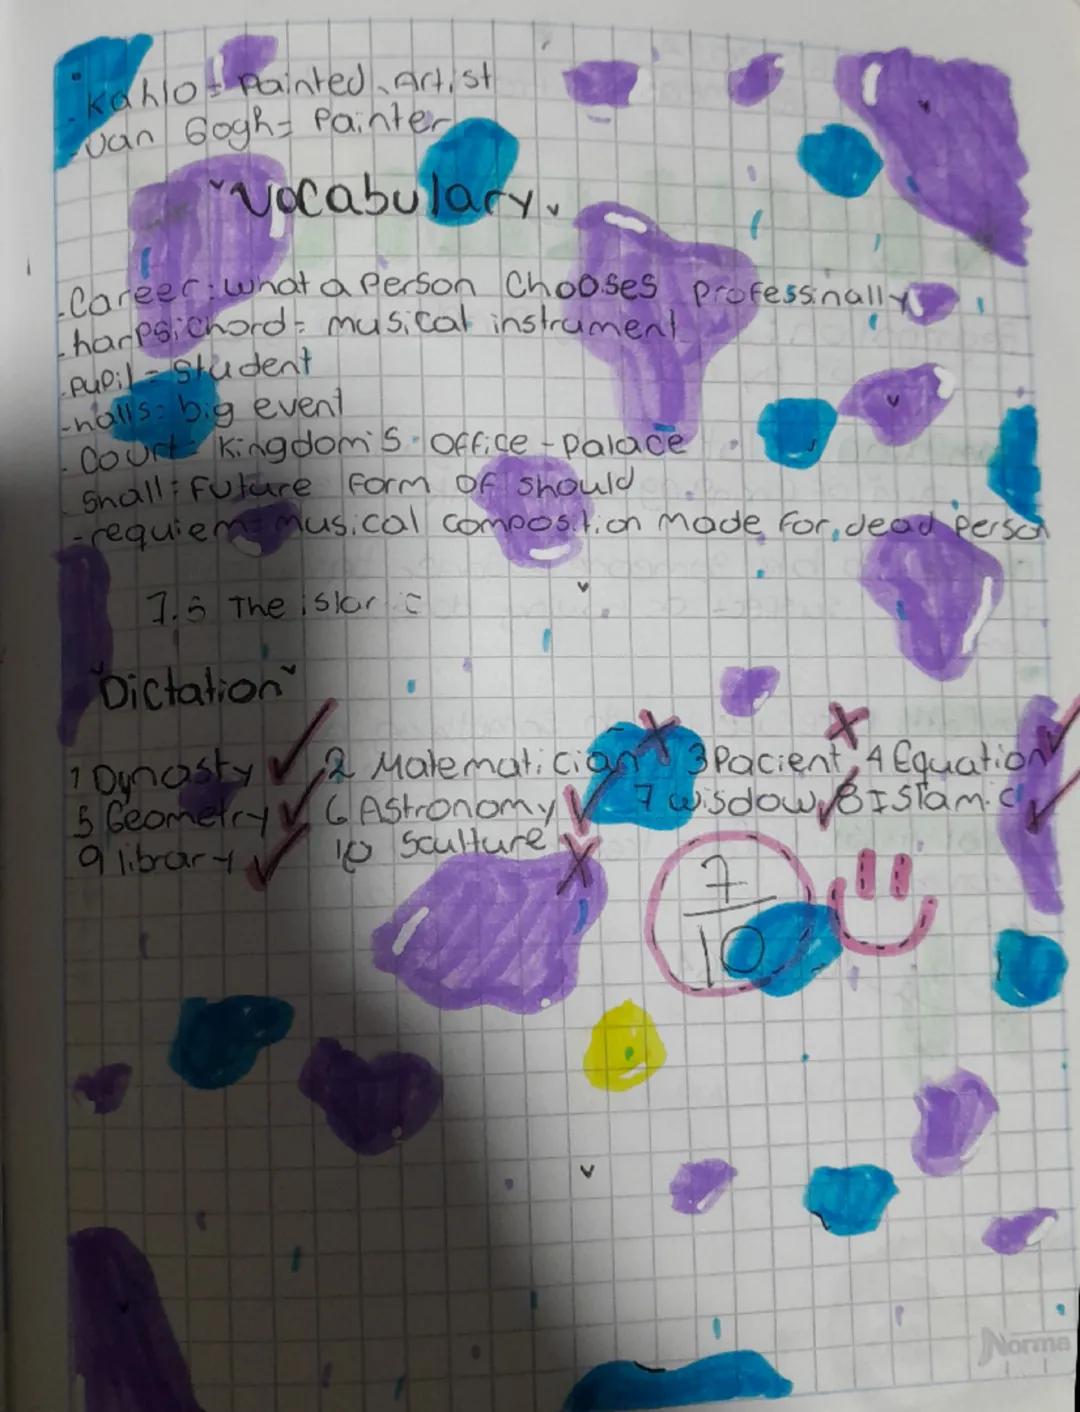 - Kahlo = Painted, Artist
- Van Gogh = Painter
"Vocabulary"
- Career: what a Person Chooses professinally
- harpsichord = musical instrument
- pupil = student
- halls: big event
- Court = Kingdom's office - Palace
Shall: Future Form OF should
- requiem = musical composition made for dead Person
7.5 The islam c
"Dictation"
1 Dynasty 2 Matematician 3 Pacient 4 Equation
5 Geometry 6 Astronomy 7 wisdow 8 Islamic
9 library 10 Sculture
7
10
Norma